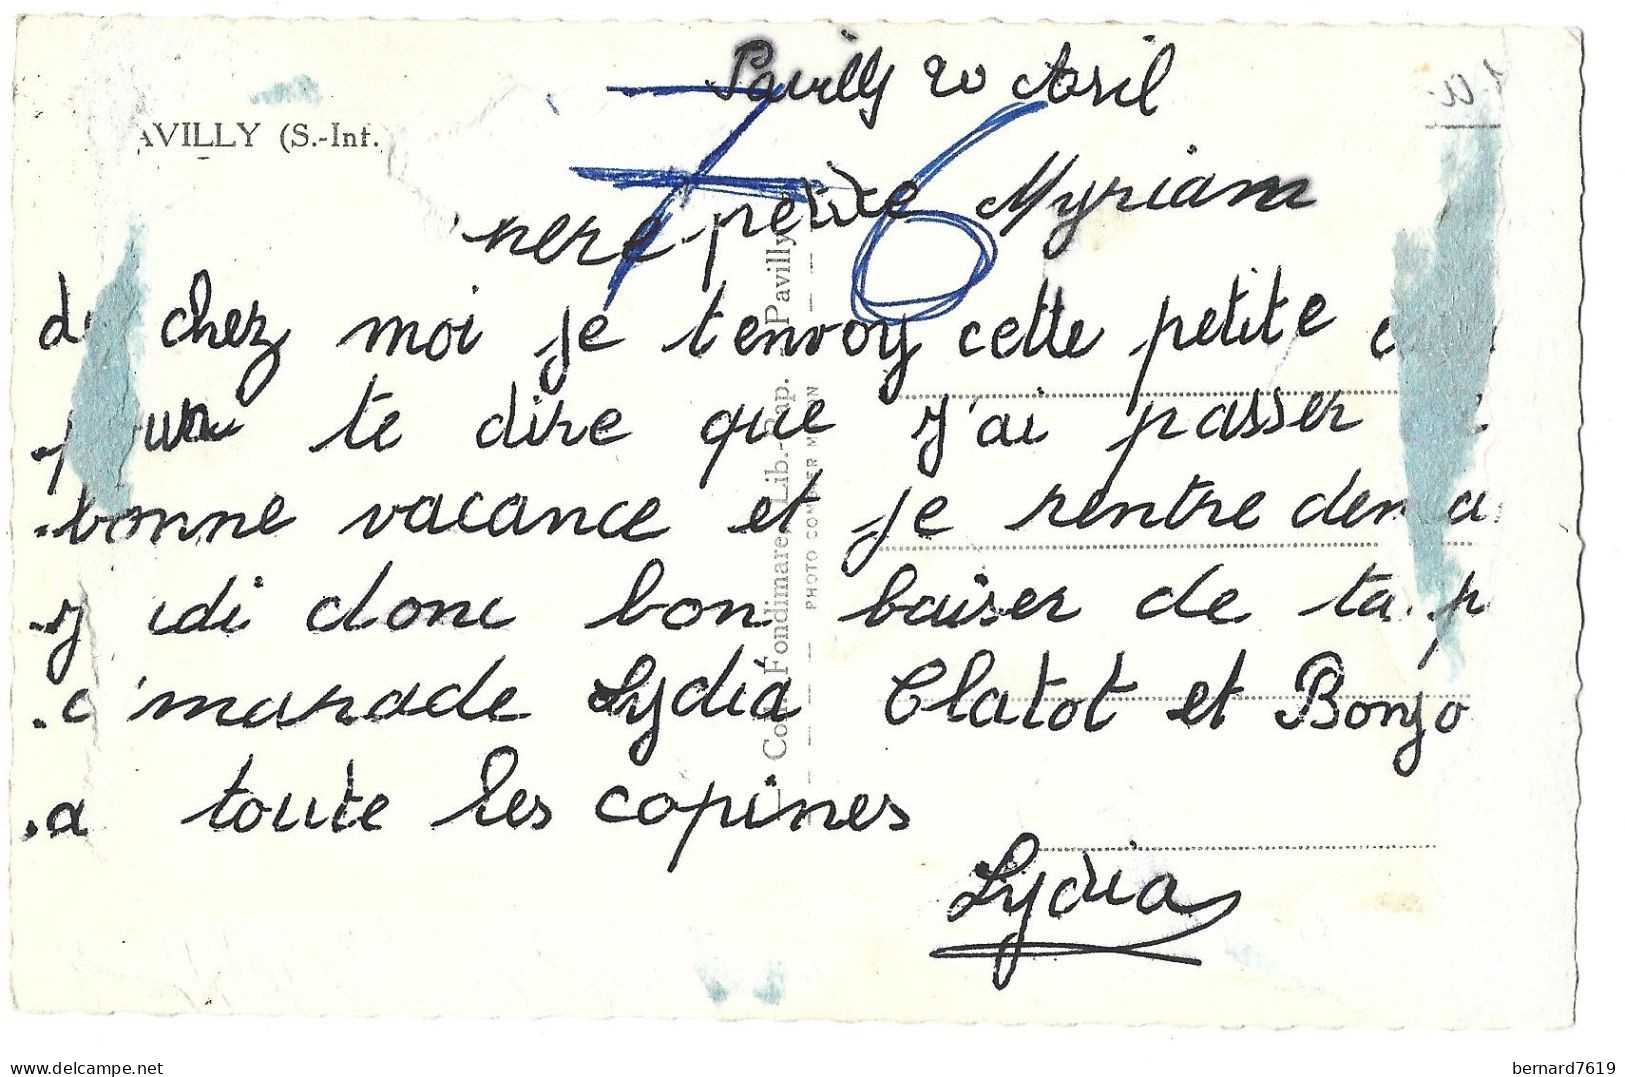 Pavilly 20 Avril
AVILLY (S.-Inf.
petite Myriam
de chez moi je t'envoy cette petite
pour te dire que j'ai passer
bonne vacance et je rentre dema
donc bon baiser de ta p
marade Lydia Clatot et Bonjo
a toute les copines
Lydia
Fondimare Lib.-Pap. Pavilly
PHOTO COMBIER M
bernard7619